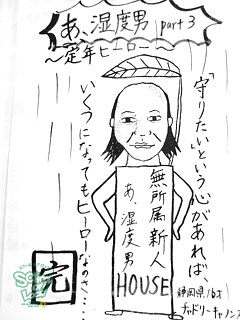 あ、湿度男 part 3
～定年ヒーロー～
「守りたい」という心があれば、
いくつになってもヒーローなのさ・・・
無所属新人
あ、湿度男
HOUSE
完
静岡県 16才
チャドリーキャノンア